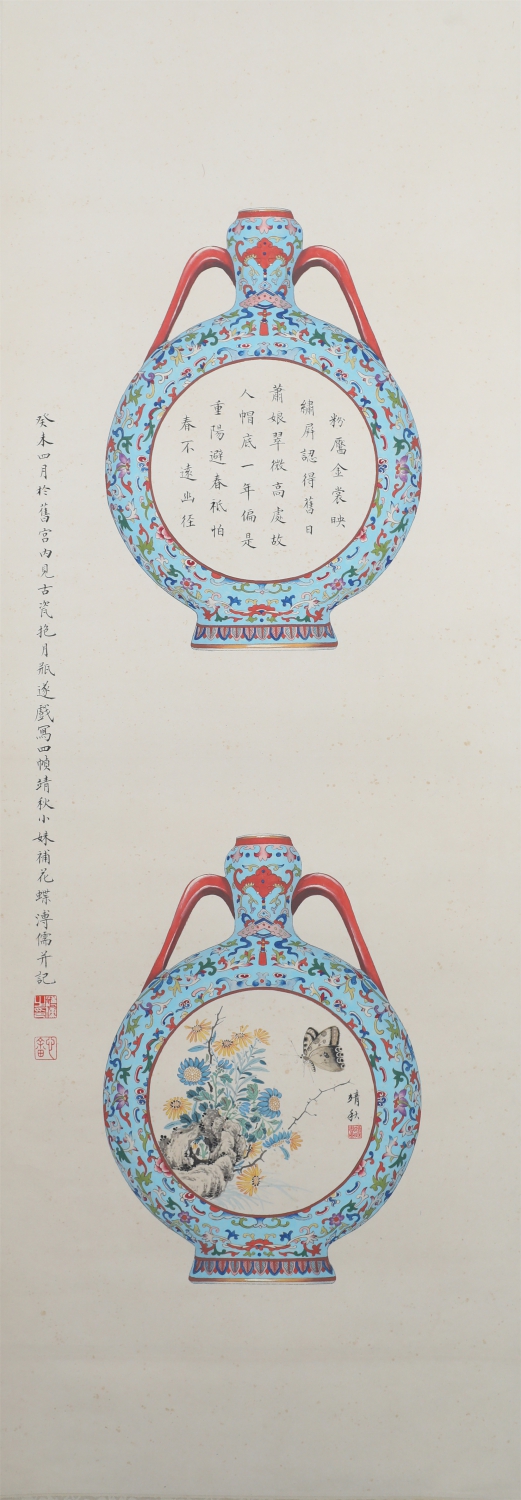 粉靨金裳映
繡屏認得舊日
蕭娘翠微高處故
人帽底一年偏是
重陽避春祇怕
春不遠幽徑
癸未四月於舊宮內見古瓷抱月瓶遂戲寫四幀靖秋小妹補花蝶溥儒并記
靖秋